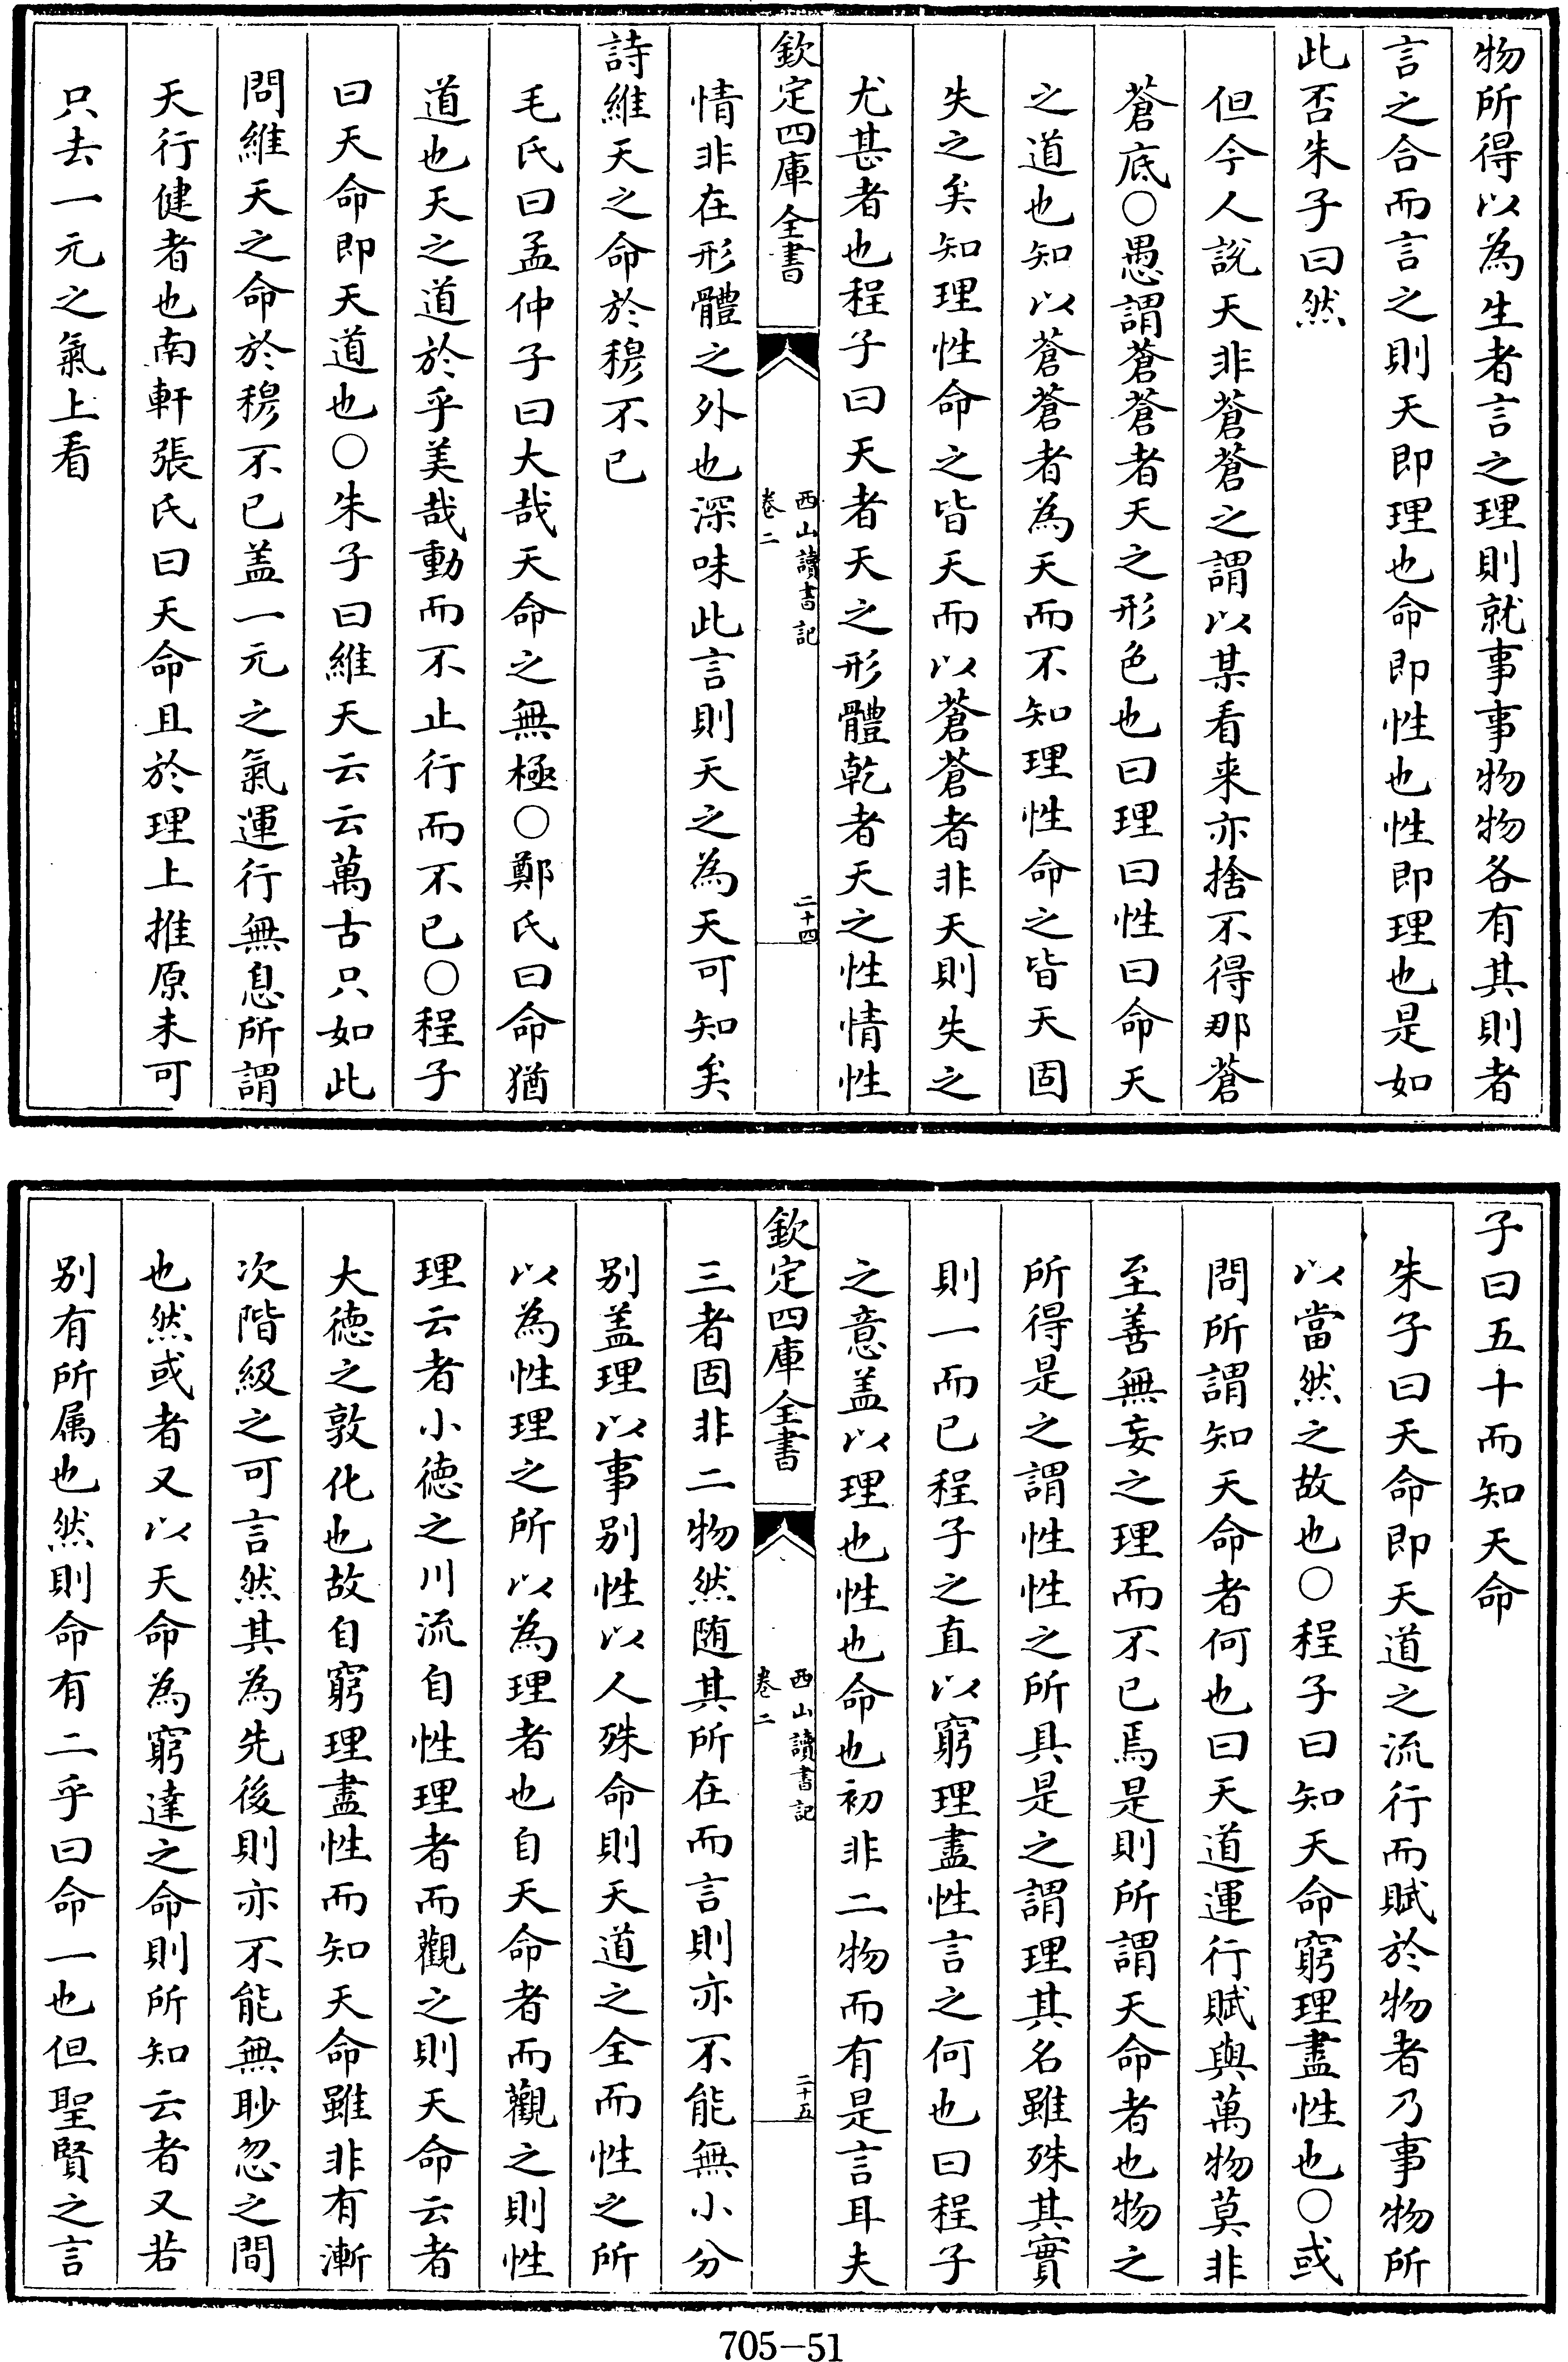 物所得以為生者言之理則就事事物物各有其則者
言之合而言之則天即理也命即性也性即理也是如
此否朱子曰然
但今人說天非蒼蒼之謂以某看来亦捨不得那蒼
蒼底○愚謂蒼蒼者天之形色也曰理曰性曰命天
之道也知以蒼蒼者為天而不知理性命之皆天固
失之矣知理性命之皆天而以蒼蒼者非天則失之
尤甚者也程子曰天者天之形體乾者天之性情性
欽定四庫全書
西山讀書記
卷二
二十四
情非在形體之外也深味此言則天之為天可知矣
詩維天之命於穆不已
毛氏曰孟仲子曰大哉天命之無極○鄭氏曰命猶
道也天之道於乎美哉動而不止行而不已○程子
曰天命即天道也○朱子曰維天云云萬古只如此
問維天之命於穆不已盖一元之氣運行無息所謂
天行健者也南軒張氏曰天命且於理上推原未可
只去一元之氣上看
子曰五十而知天命
朱子曰天命即天道之流行而賦於物者乃事物所
以當然之故也○程子曰知天命窮理盡性也○或
問所謂知天命者何也曰天道運行賦與萬物莫非
至善無妄之理而不已焉是則所謂天命者也物之
所得是之謂性性之所具是之謂理其名雖殊其實
則一而已程子之直以窮理盡性言之何也曰程子
之意盖以理也性也命也初非二物而有是言耳夫
欽定四庫全書
西山讀書記
卷二
二十五
三者固非二物然随其所在而言則亦不能無小分
别盖理以事别性以人殊命則天道之全而性之所
以為性理之所以為理者也自天命者而觀之則性
理云者小徳之川流自性理者而觀之則天命云者
大徳之敦化也故自窮理盡性而知天命雖非有漸
次階級之可言然其為先後則亦不能無眇忽之間
也然或者又以天命為窮達之命則所知云者又若
别有所属也然則命有二乎曰命一也但聖賢之言
705-51